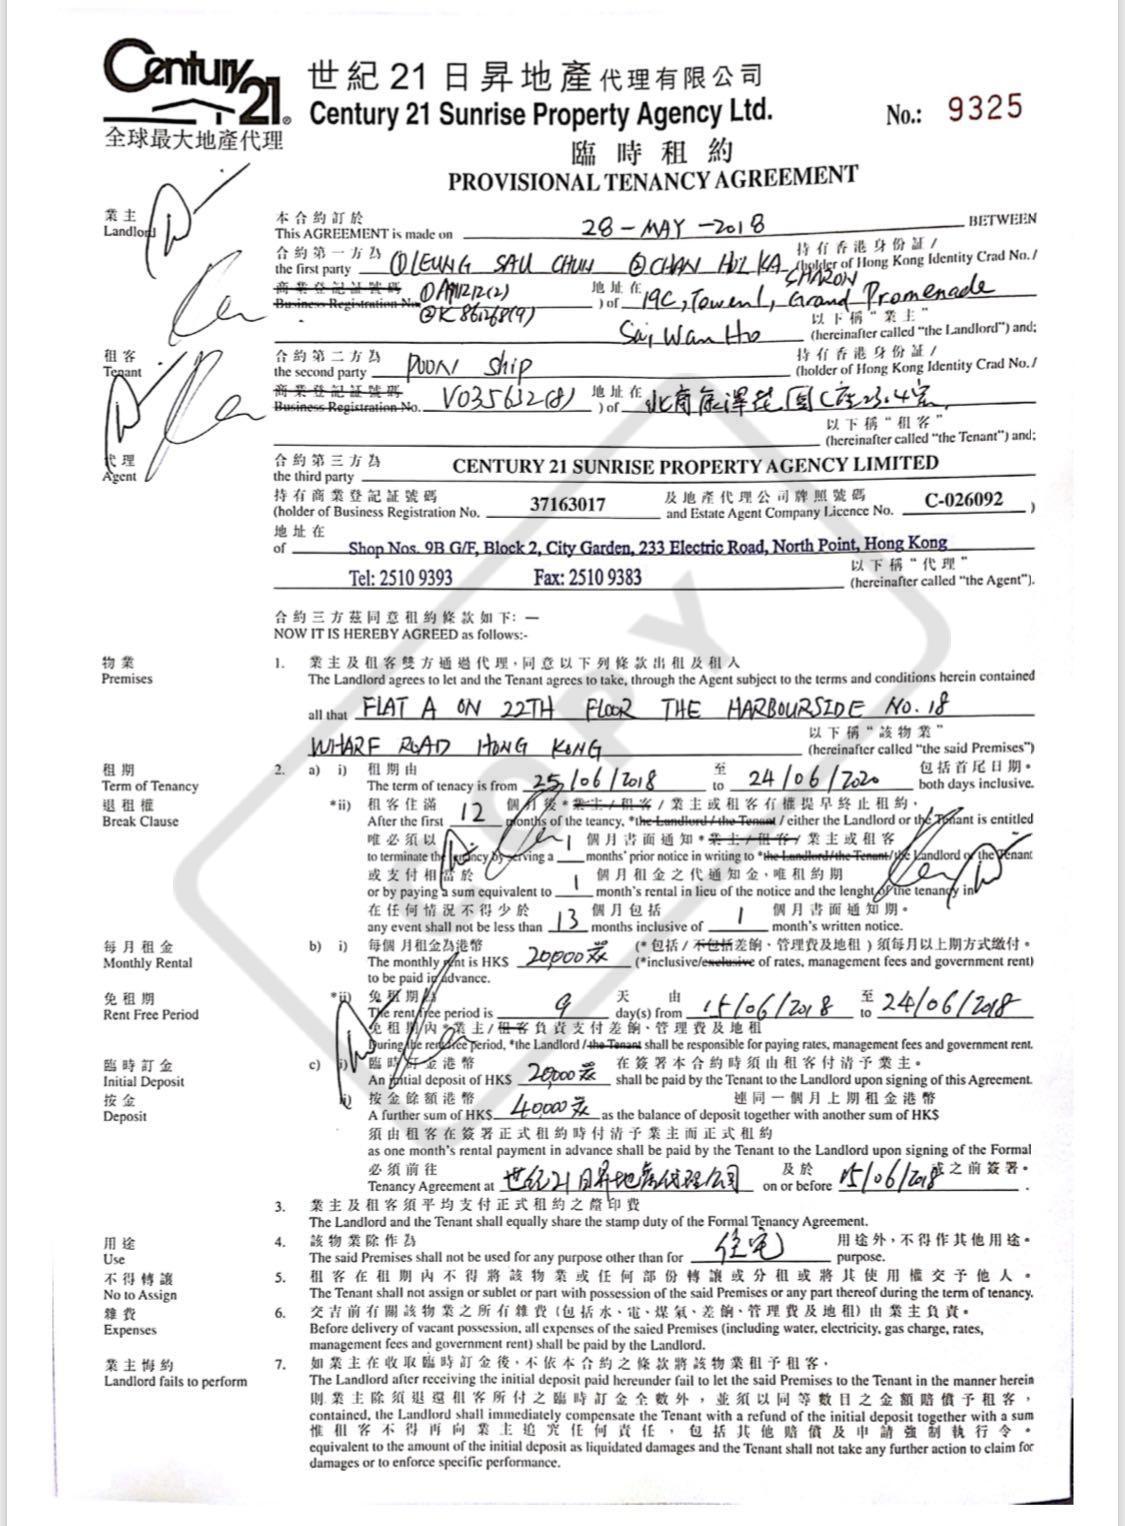 Century 21
全球最大地產代理
世紀 21 日昇地產代理有限公司
Century 21 Sunrise Property Agency Ltd.
No.: 9325
臨時租約
PROVISIONAL TENANCY AGREEMENT
業主
Landlord
本合約訂於
This AGREEMENT is made on 28-MAY-2018 BETWEEN
合約第一方為 持有香港身份証/
the first party ①LEUNG SAU CHUN ②CHAN HOI KA SHARON (holder of Hong Kong Identity Crad No./
商業登記証號碼 地址在
Business Registration No. ) of 19C, Tower 1, Grand Promenade
②K 861268(9)
以下稱“業主”
Sai Wan Ho (hereinafter called “the Landlord”) and;
租客
Tenant
合約第二方為 持有香港身份証/
the second party POON Ship (holder of Hong Kong Identity Crad No./
商業登記証號碼 地址在
Business Registration No. V035632(8) ) of
以下稱“租客”
(hereinafter called “the Tenant”) and;
代理
Agent
合約第三方為
the third party CENTURY 21 SUNRISE PROPERTY AGENCY LIMITED
持有商業登記証號碼 及地產代理公司牌照號碼
(holder of Business Registration No. 37163017 and Estate Agent Company Licence No. C-026092 )
地址在
of Shop Nos. 9B G/F, Block 2, City Garden, 233 Electric Road, North Point, Hong Kong
以下稱“代理”
Tel: 2510 9393 Fax: 2510 9383 (hereinafter called “the Agent”).
合約三方茲同意租約條款如下：—
NOW IT IS HEREBY AGREED as follows:-
物業
Premises
1. 業主及租客雙方通過代理，同意以下列條款出租及租入
The Landlord agrees to let and the Tenant agrees to take, through the Agent subject to the terms and conditions herein contained
all that FLAT A ON 22TH FLOOR THE HARBOURSIDE NO. 18
以下稱“該物業”
WHARF ROAD HONG KONG (hereinafter called “the said Premises”)
租期
Term of Tenancy
2. a) i) 租期由 至 包括首尾日期。
The term of tenacy is from 25/06/2018 to 24/06/2020 both days inclusive.
退租權
Break Clause
*ii) 租客住滿 個月後*業主/租客/業主或租客有權提早終止租約，
After the first 12 months of the teancy, *the Landlord / the Tenant / either the Landlord or the Tenant is entitled
唯必須以 個月書面通知*業主/租客/業主或租客
to terminate the tenancy by serving a 1 months' prior notice in writing to *the Landlord/the Tenant/the Landlord or the Tenant
或支付相當於 個月租金之代通知金，唯租約期
or by paying a sum equivalent to 1 month's rental in lieu of the notice and the lenght of the tenancy in
在任何情況不得少於 個月包括 個月書面通知期。
any event shall not be less than 13 months inclusive of 1 month's written notice.
每月租金
Monthly Rental
b) i) 每個月租金為港幣 (*包括/不包括差餉、管理費及地租)須每月以上期方式繳付。
The monthly rent is HK$ 20,000 (*inclusive/exclusive of rates, management fees and government rent)
to be paid in advance.
免租期
Rent Free Period
*ii) 免租期為 天 由 至
The rent free period is 9 day(s) from 15/06/2018 to 24/06/2018
免租期內*業主/租客負責支付差餉、管理費及地租
During the rent free period, *the Landlord / the Tenant shall be responsible for paying rates, management fees and government rent.
臨時訂金
Initial Deposit
c) i) 臨時訂金港幣 在簽署本合約時須由租客付清予業主。
An initial deposit of HK$ 20,000 shall be paid by the Tenant to the Landlord upon signing of this Agreement.
按金
Deposit
ii) 按金餘額港幣 連同一個月上期租金港幣
A further sum of HK$ 40,000 as the balance of deposit together with another sum of HK$
須由租客在簽署正式租約時付清予業主而正式租約
as one month's rental payment in advance shall be paid by the Tenant to the Landlord upon signing of the Formal
必須前往 及於 或之前簽署。
Tenancy Agreement at 世紀21日昇地產代理公司 on or before 15/06/2018 .
3. 業主及租客須平均支付正式租約之釐印費
The Landlord and the Tenant shall equally share the stamp duty of the Formal Tenancy Agreement.
用途
Use
4. 該物業除作為 用途外，不得作其他用途。
The said Premises shall not be used for any purpose other than for 住宅 purpose.
不得轉讓
No to Assign
5. 租客在租期內不得將該物業或任何部份轉讓或分租或將其使用權交予他人。
The Tenant shall not assign or sublet or part with possession of the said Premises or any part thereof during the term of tenancy.
雜費
Expenses
6. 交吉前有關該物業之所有雜費(包括水、電、煤氣、差餉、管理費及地租)由業主負責。
Before delivery of vacant possession, all expenses of the saied Premises (including water, electricity, gas charge, rates,
management fees and government rent) shall be paid by the Landlord.
業主悔約
Landlord fails to perform
7. 如業主在收取臨時訂金後，不依本合約之條款將該物業租予租客，
The Landlord after receiving the initial deposit paid hereunder fail to let the said Premises to the Tenant in the manner herein
則業主除須退還租客所付之臨時訂金全數外，並須以同等數目之金額賠償予租客，
contained, the Landlord shall immediately compensate the Tenant with a refund of the initial deposit together with a sum
惟租客不得再向業主追究任何責任，包括其他賠償及申請強制執行令。
equivalent to the amount of the initial deposit as liquidated damages and the Tenant shall not take any further action to claim for
damages or to enforce specific performance.
COPY